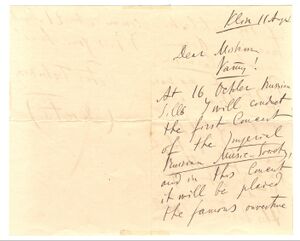 Klin 11
Dear
At 16 October Russian
I will conduct
the first Concert
of the Imperial
Russian Music Society,
and in this Concert
it will be played
the famous ouverture